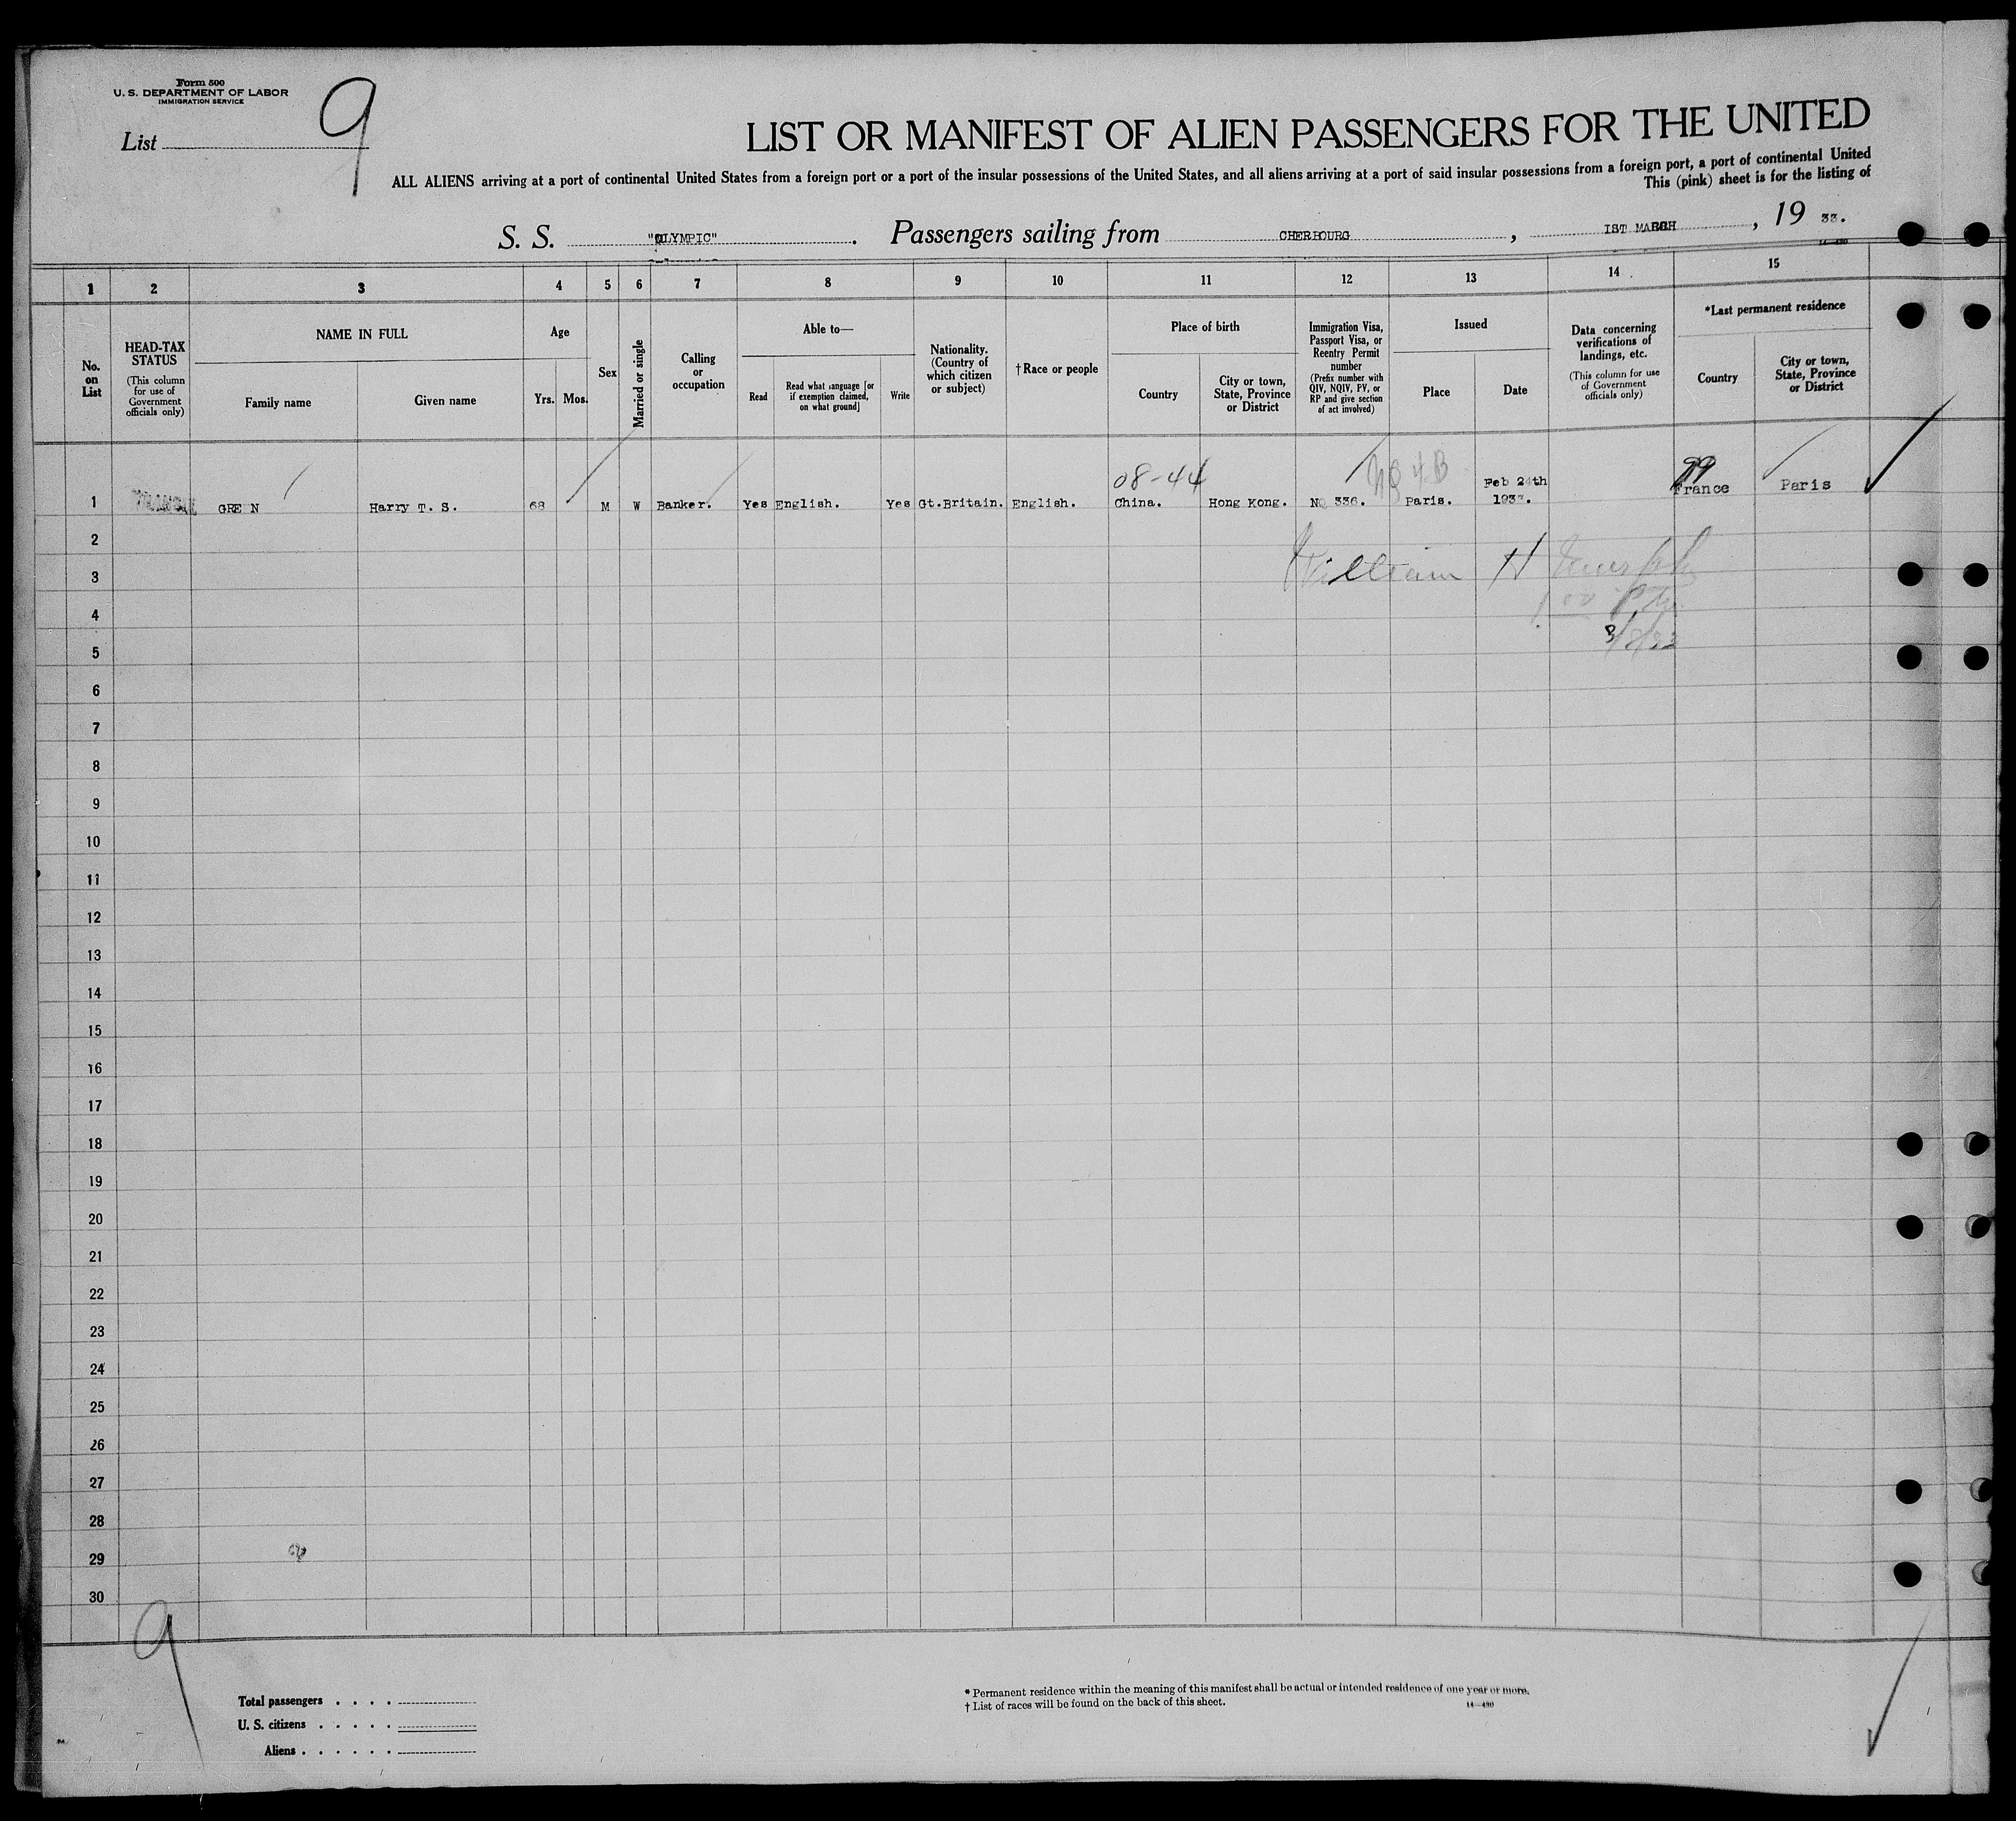 Form 500
U. S. DEPARTMENT OF LABOR
IMMIGRATION SERVICE
List 9
LIST OR MANIFEST OF ALIEN PASSENGERS FOR THE UNITED
ALL ALIENS arriving at a port of continental United States from a foreign port or a port of the insular possessions of the United States, and all aliens arriving at a port of said insular possessions from a foreign port, a port of continental United
This (pink) sheet is for the listing of
S. S. "OLYMPIC". Passengers sailing from CHERBOURG, 1ST MARCH, 19 33.
14-430
1 2 3 4 5 6 7 8 9 10 11 12 13 14 15
No. on List
HEAD-TAX STATUS
(This column for use of Government officials only)
NAME IN FULL
Family name
Given name
Age
Yrs. Mos.
Sex
Married or single
Calling or occupation
Able to—
Read
Read what language [or if exemption claimed, on what ground]
Write
Nationality. (Country of which citizen or subject)
†Race or people
Place of birth
Country
City or town, State, Province or District
Immigration Visa, Passport Visa, or Reentry Permit number
(Prefix number with QIV, NQIV, PV, or RP and give section of act involved)
Issued
Place
Date
Data concerning verifications of landings, etc.
(This column for use of Government officials only)
*Last permanent residence
Country
City or town, State, Province or District
08-44
99
1 GRE N Harry T. S. 68 M W Banker. Yes English. Yes Gt.Britain. English. China. Hong Kong. NQ 336. Paris. Feb 24th 1933. France Paris
2
William H
3
4
5
6
7
8
9
10
11
12
13
14
15
16
17
18
19
20
21
22
23
24
25
26
27
28
29
30
9
Total passengers . . . .
U. S. citizens . . . . .
Aliens . . . . . .
* Permanent residence within the meaning of this manifest shall be actual or intended residence of one year or more.
† List of races will be found on the back of this sheet.
14-430